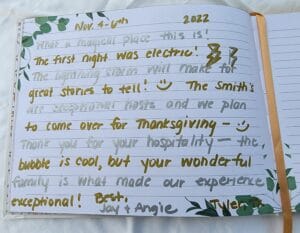 Nov. 4-6th 2022
What a magical place this is!
The first night was electric!
The lightning storm will make for
great stories to tell! The Smith's
are exceptional hosts and we plan
to come over for Thanksgiving -
Thank you for your hospitality - the
bubble is cool, but your wonderful
family is what made our experience
exceptional! Best,
Jay & Angie